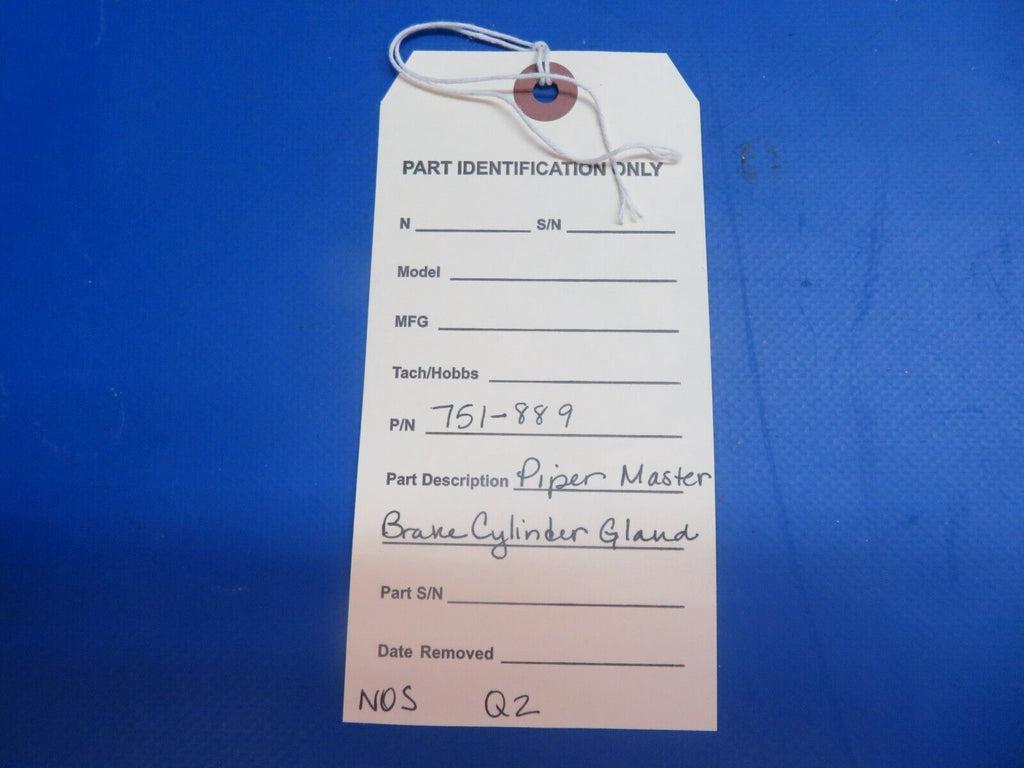 PART IDENTIFICATION ONLY
N S/N
Model
MFG
Tach/Hobbs
P/N 751-889
Part Description Piper Master
Brake Cylinder Gland
Part S/N
Date Removed
NOS Q2